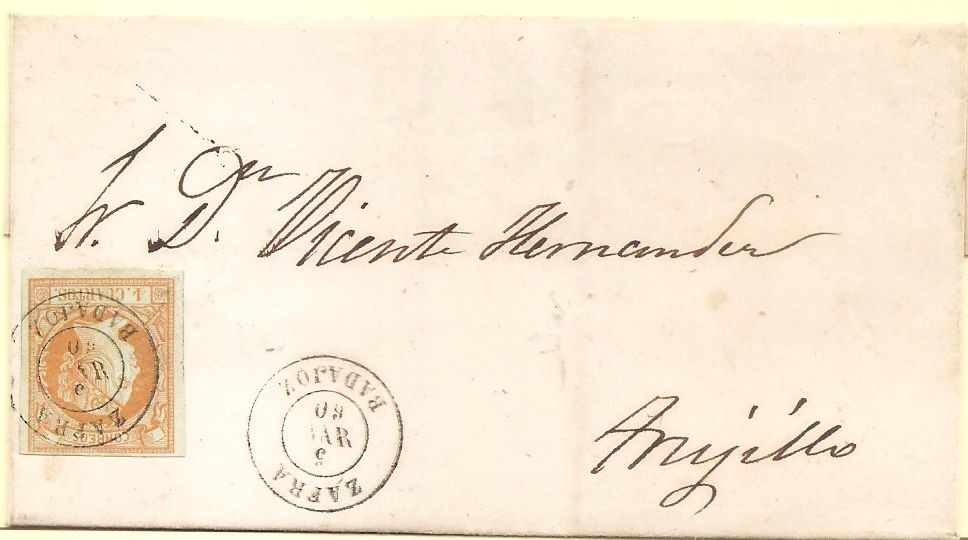 Sr. Dn. Vicente Hernandez
Trujillo
4. CUARTOS.
CORREOS
ZAFRA
5 MAR 60
BADAJOZ
ZAFRA
5 MAR 60
BADAJOZ